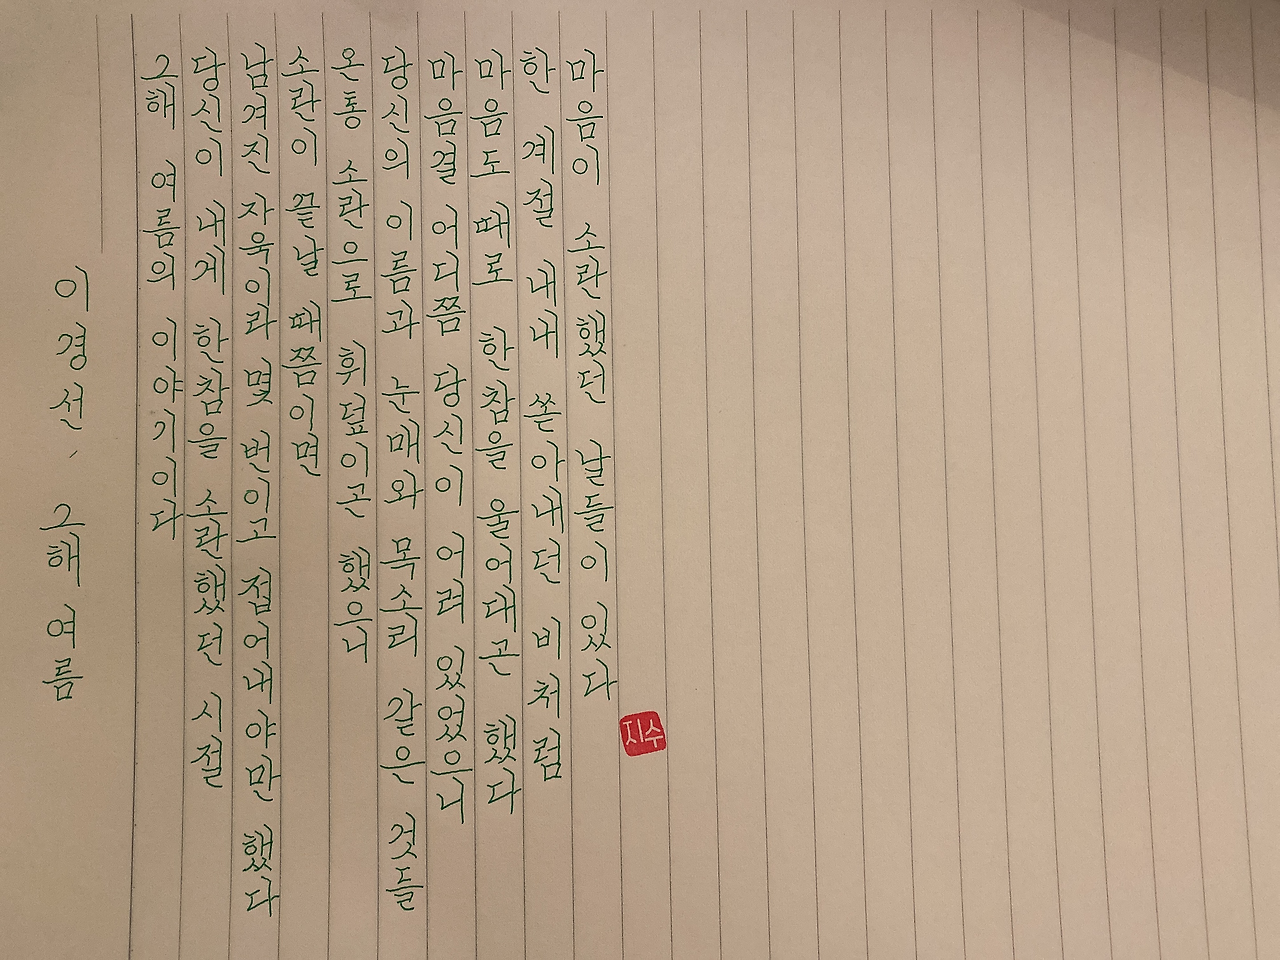 마음이 소란했던 날들이 있다
한 계절 내내 쏟아내던 비처럼
마음도 때로 한참을 울어대곤 했다
마음결 어디쯤 당신이 어려 있었으니
당신의 이름과 눈매와 목소리 같은 것들
온통 소란으로 휘덮이곤 했으니
소란이 끝날 때쯤이면
남겨진 자욱이라 몇 번이고 접어내야만 했다
당신이 내게 한참을 소란했던 시절
그해 여름의 이야기이다
이경선, 그해 여름
지수